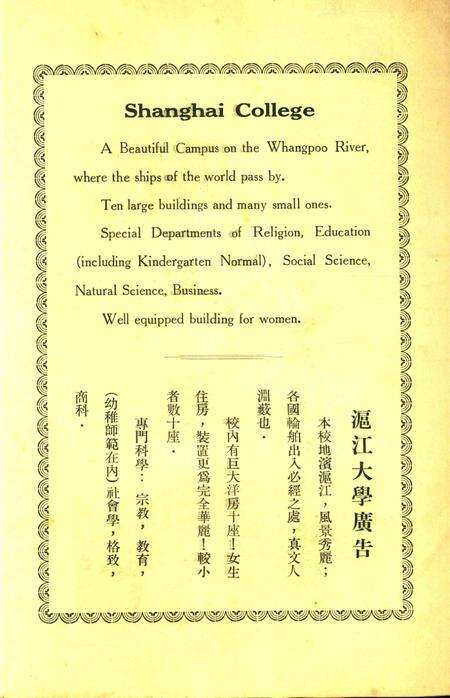 Shanghai College
A Beautiful Campus on the Whangpoo River,
where the ships of the world pass by.
Ten large buildings and many small ones.
Special Departments of Religion, Education
(including Kindergarten Normal), Social Science,
Natural Science, Business.
Well equipped building for women.
滬江大學廣告
本校地濱滬江，風景秀麗；
各國輪舶出入必經之處，真文人
淵藪也．
校內有巨大洋房十座！女生
住房，裝置更爲完全華麗！較小
者數十座．
專門科學：宗教，教育，
(幼稚師範在內)社會學，格致，
商科．